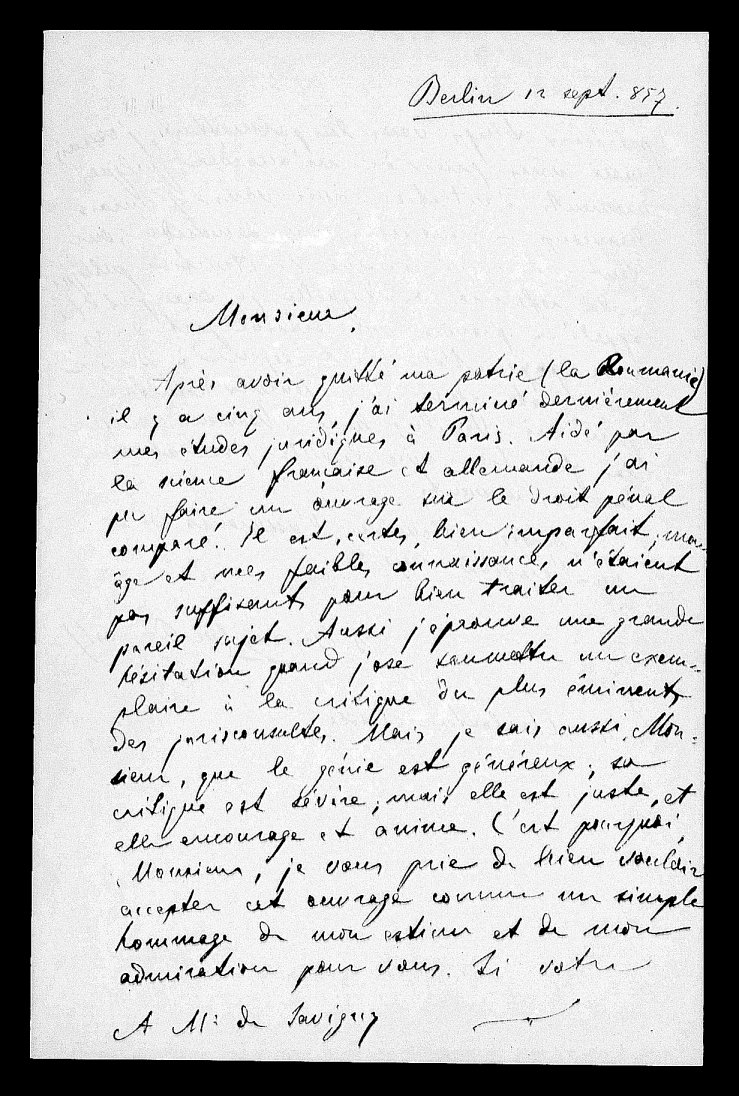 Berlin 12 sept. 857.
Monsieur,
Après avoir quitté ma patrie (la Roumanie)
il y a cinq ans, j'ai terminé dernièrement
mes études juridiques à Paris. Aidé par
la science française et allemande j'ai
pu faire un ouvrage sur le droit pénal
comparé. Il est, certes, bien imparfait; mon
âge et mes faibles connaissances n'étaient
pas suffisants pour bien traiter un
pareil sujet. Aussi j'éprouve une grande
hésitation quand j'ose soumettre un exem-
plaire à la critique du plus éminent
des jurisconsultes. Mais je sais aussi, Mon-
sieur, que le génie est généreux; sa
critique est sévère, mais elle est juste, et
elle encourage et anime. C'est pourquoi,
Monsieur, je vous prie de bien vouloir
accepter cet ouvrage comme un simple
hommage de mon estime et de mon
admiration pour vous. Si votre
A Mr: de Savigny